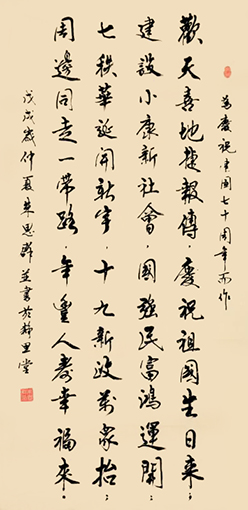 為慶祝建國七十周年而作
歡天喜地捷報傳，慶祝祖國生日來；
建設小康新社會，國強民富鴻運開；
七秩華誕開新宇，十九新政萬家抬；
周邊同走一帶路，年豐人壽幸福來。
戊戌歲仲夏朱思並書於靜里堂